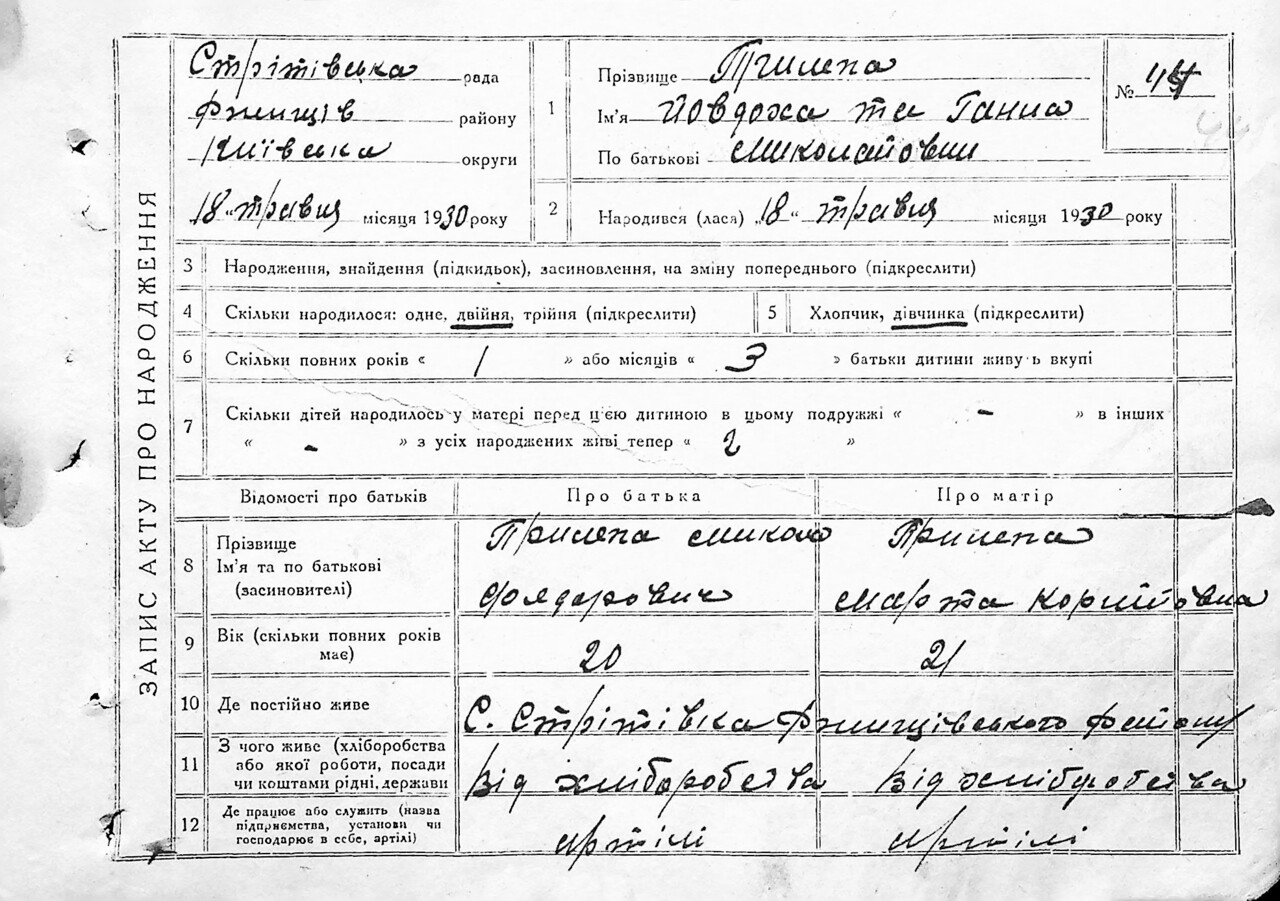 ЗАПИС АКТУ ПРО НАРОДЖЕННЯ
Стрітівська рада
Ржищів району
Київська округи
18 „ травня місяця 1930 року
1 Прізвище Прилепа
Ім'я Йовдоха та Ганна
По батькові Миколайовни
№
44
2 Народився (лася) „ 18 “ травня місяця 1930 року
3 Народження, знайдення (підкидьок), засиновлення, на зміну попереднього (підкреслити)
4 Скільки народилося: одне, двійня, трійня (підкреслити)
5 Хлопчик, дівчинка (підкреслити)
6 Скільки повних років « 1 » або місяців « 3 » батьки дитини живу ь вкупі
7 Скільки дітей народилось у матері перед ц'єю дитиною в цьому подружжі « - » в інших
« - » з усіх народжених живі тепер « 2 »
Відомості про батьків Про батька Про матір
8 Прізвище
Ім'я та по батькові
(засиновителі)
Прилепа Микола
Фоядорович
Прилепа
Марта Корнійовна
9 Вік (скільки повних років
має)
20 21
10 Де постійно живе С. Стрітівка Ржищівського району
11 З чого живе (хліборобства
або якої роботи, посади
чи коштами рідні, держави
Від хліборобства Від хліборобства
12 Де працює або служить (назва
підприємства, установи чи
господарює в себе, артілі)
артілі артілі